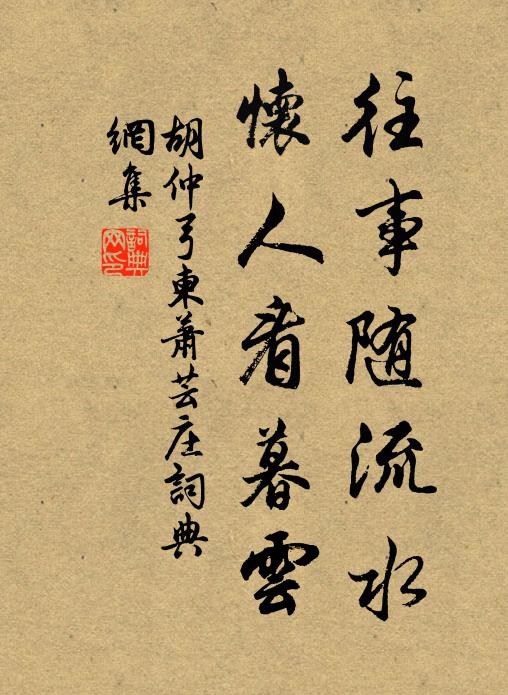 往事随流水
懷人看暮雲
胡仲弓東蕭芸庄詞典
網集
詞典
网印